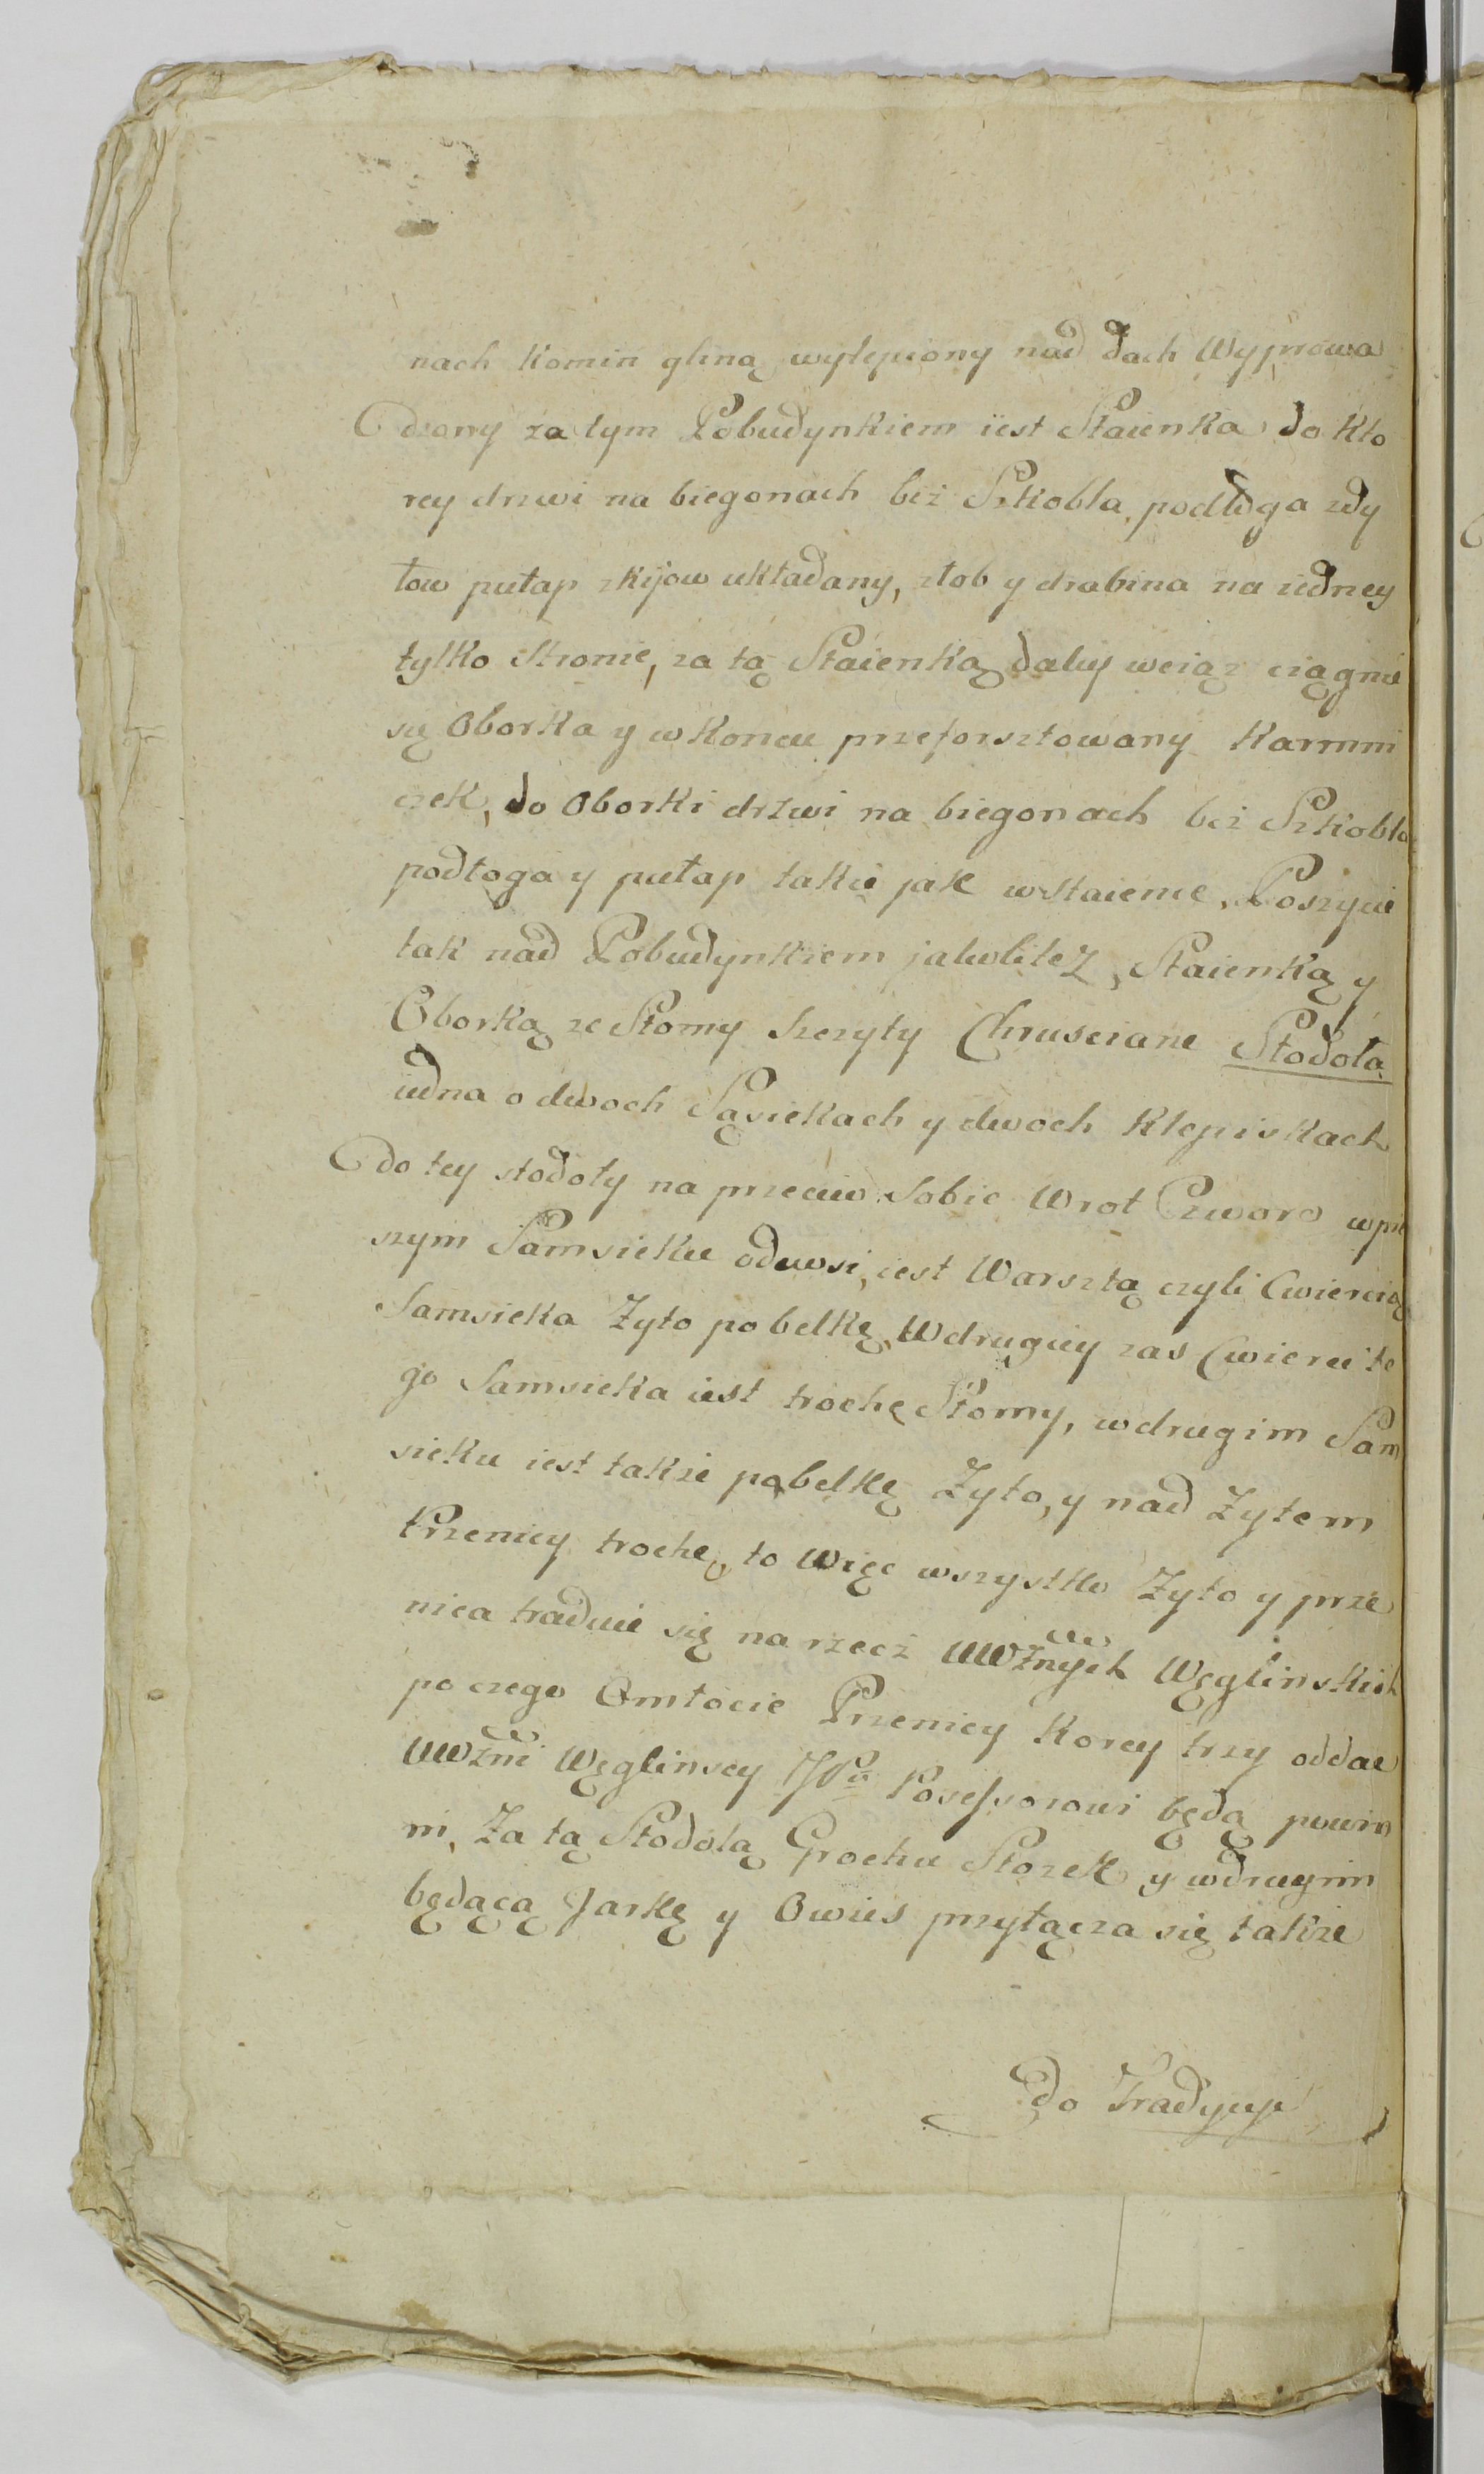 nach Komin gliną wylepiony nad dach Wyprowa
dzony za tym Pobudynkiem iest Staienka do kto
rey drzwi na biegonach bez Szkobla, podłoga zdy
low pułap zkijow układany, złob y drabina na iedney
tylko stronie, za tą Staienką daley wciąz ciągnie
się Oborka y w Koncu przeforsztowany Karmni
czek, do Oborki drzwi na biegonach bez Szkobla
podłoga y pułap takie jak w staience, Poszycie
tak nad Pobudynkiem jako też, Staienką y
Oborką ze Słomy Szczyty Chrusciane Stodoła
iedna o dwoch Sąsiekach y dwoch Klepiskach
do tey stodoły na przeciw Sobie Wrot Czworo w pie
szym Samsieku odewsi, iest Warsztą czyli Cwiercią
Samsieka Zyto po belkę, W drugiey zas Cwierci te
go Samsieka iest trochę Słomy, w drugim Sam
sieku iest takze po belkę Zyto, y nad Zytem
Przenicy trochę, to Więc wszystko Zyto y prze
nica traduie się na rzecz WWżnych Węglinskich
po czego Omłocie Przenicy Korcy trzy oddac
WWżni Węglinscy JPu Possessorowi będą powin
ni, Za tą Stodołą Grochu Stozek y w drugim
będącą Jarkę y Owies przyłącza się takze
do Tradycyi